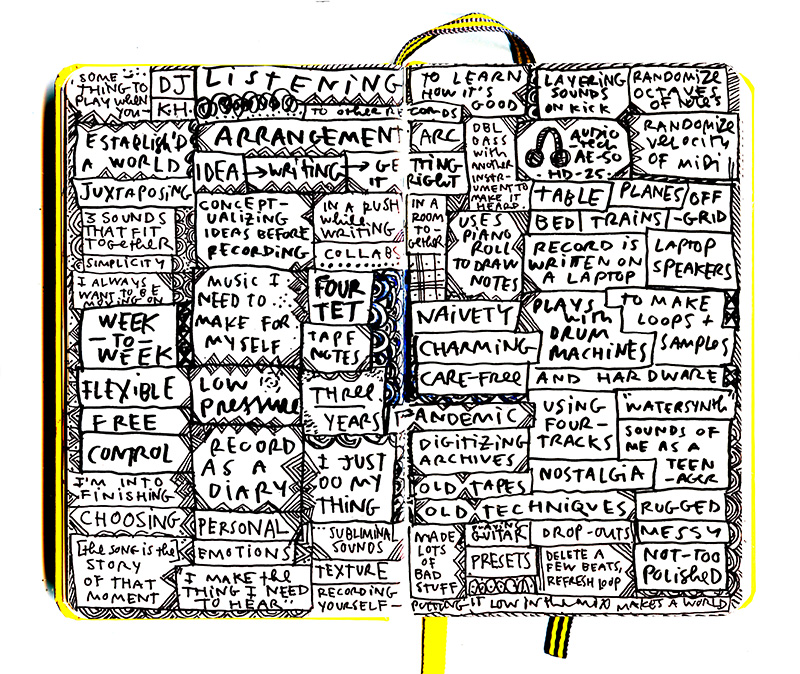 SOME
THING TO
PLAY WHEN
YOU—
DJ
K.H.
LISTENING
TO OTHER RECORDS
TO LEARN
HOW IT'S
GOOD
LAYERING
SOUNDS
ON KICK
RANDOMIZE
OCTAVES
OF NOTES
ESTABLISH'D
A WORLD
ARRANGEMENT
ARC
DBL
BASS
WITH
ANOTHER
INSTR-
UMENT TO
MAKE IT
HEARD
AUDIO
-TECH
AE-50
HD-25
RANDOMIZE
VELOCITY
OF MIDI
IDEA → WRITING → GET
IT
THING
RIGHT
JUXTAPOSING
3 SOUNDS
THAT FIT
TOGETHER
SIMPLICITY
I ALWAYS
WANT TO BE
MOVING ON
CONCEPT-
UALIZING
IDEAS BEFORE
RECORDING
IN A RUSH
WHILE
WRITING
COLLABS
IN A
ROOM
TO-
GETHER
USES
PIANO
ROLL
TO DRAW
NOTES
TABLE
PLANES
OFF
-GRID
BED
TRAINS
RECORD IS
WRITTEN ON
A LAPTOP
LAPTOP
SPEAKERS
WEEK
—TO—
WEEK
MUSIC I
NEED TO
MAKE FOR
MYSELF
FOUR
TET
TAPE
NOTES
NAIVETY
CHARMING
CARE-FREE
PLAYS
WITH
DRUM
MACHINES
TO MAKE
LOOPS +
SAMPLES
AND HARDWARE
FLEXIBLE
FREE
CONTROL
LOW
PRESSURE
THREE
YEARS
PANDEMIC
DIGITIZING
ARCHIVES
USING
FOUR-
TRACKS
"WATERSYNTH"
SOUNDS OF
ME AS A
TEEN
-AGER
I'M INTO
FINISHING
RECORD
AS A
DIARY
I JUST
DO MY
THING
OLD TAPES
NOSTALGIA
CHOOSING
PERSONAL
EMOTIONS
"SUBLIMINAL
SOUNDS
OLD TECHNIQUES
RUGGED
[THE SONG IS THE]
STORY
OF THAT
MOMENT
"I MAKE THE
THING I NEED
TO HEAR"
TEXTURE
RECORDING
YOURSELF—
MADE
LOTS
OF
BAD
STUFF
PLAYING
GUITAR
PRESETS
DROP-OUTS
MESSY
DELETE A
FEW BEATS,
REFRESH LOOP
NOT-TOO
POLISHED
PUTTING IT LOW IN THE MIX MAKES A WORLD